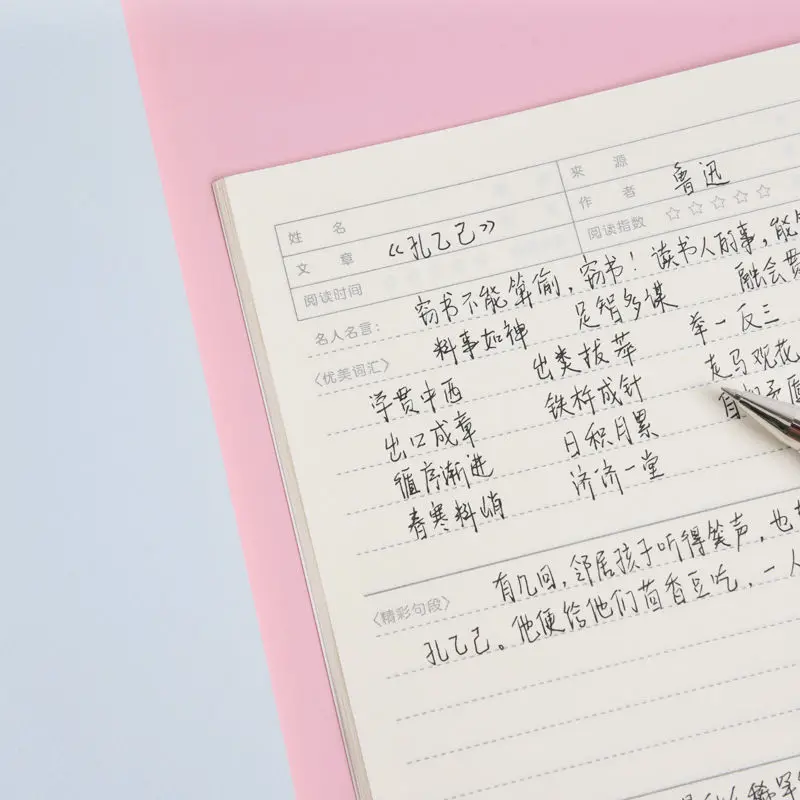 姓 名 来 源
文 章 《孔乙己》 作 者 鲁迅
阅读时间 阅读指数 ☆☆☆☆☆
名人名言: 窃书不能算偷,窃书!读书人的事,能
〈优美词汇〉 料事如神 足智多谋 融会贯
学贯中西 出类拔萃 举一反三
出口成章 铁杵成针 走马观花
循序渐进 日积月累 自相矛盾
春寒料峭 济济一堂
有几回,邻居孩子听得笑声,也
〈精彩句段〉
孔乙己。他便给他们茴香豆吃,一人